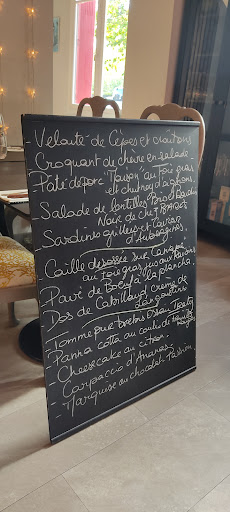 - Velouté de Cèpes et croûtons
Croquant de chèvre en salade -
- Pâté de porc "Maison" au foie gras
et chutney d'oignons,
- Salade de lentilles, Porc
Noir de chez
- Sardines grillées et Caviar
d'Aubergines,
- Caille désossée sur Canapé
au foie gras jus aux Raisins
- Pavé de Boeuf à la plancha,
- Dos de Cabillaud crème de
Langoustine
- Tomme pur brebis Ossau Iraty
- Panna cotta au coulis de fruits
rouges
- Cheesecake au citron,
- Carpaccio d'Ananas,
- Marquise au chocolat Passion,